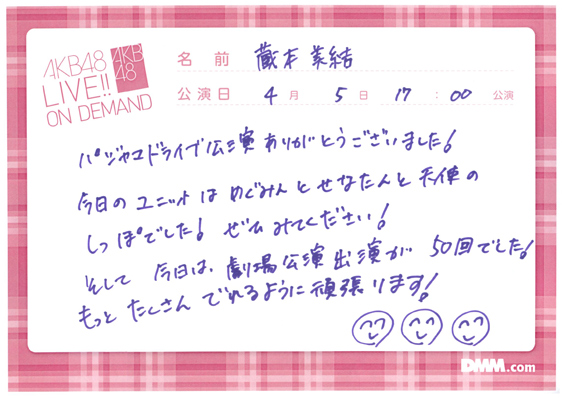 AKB48
LIVE!!
ON DEMAND
AKB
48
名前 蔵本美結
公演日 4月 5日 17:00 公演
パジャマドライブ公演ありがとうございました!
今日のユニットは めぐみんとせなたんと天使の
しっぽでした! ぜひみてください!
そして 今日は、劇場公演出演が 50回でした!
もっと たくさん でれるように頑張ります!
DMM.com